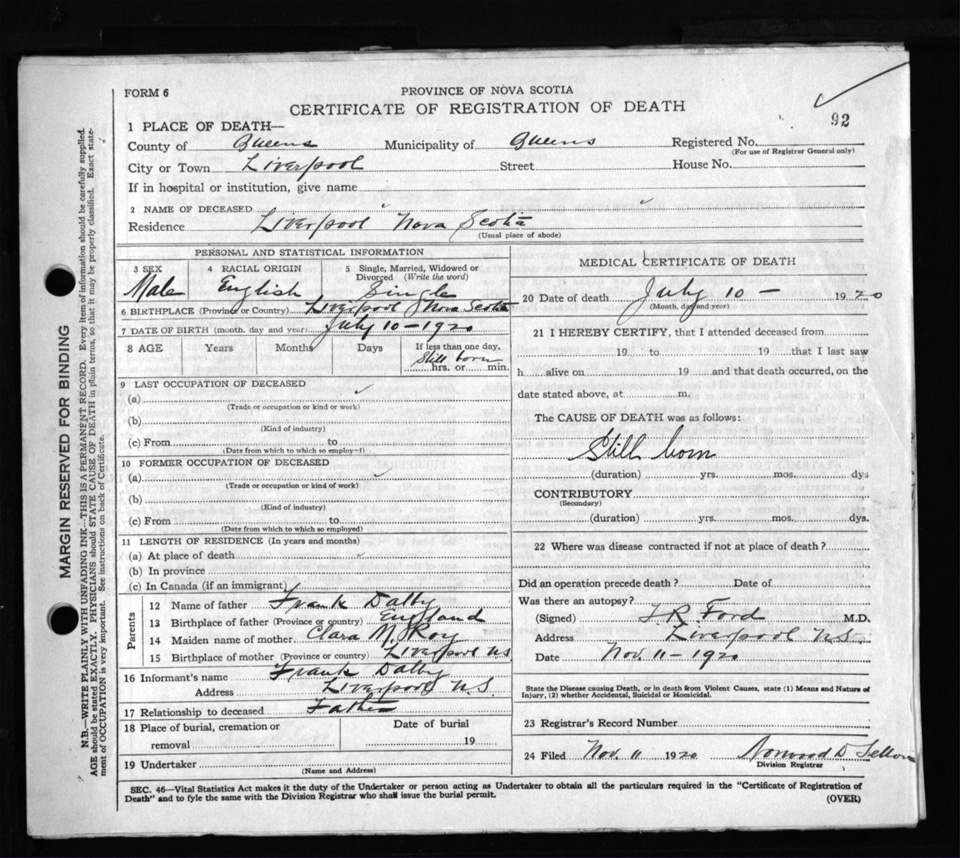 FORM 6
PROVINCE OF NOVA SCOTIA
CERTIFICATE OF REGISTRATION OF DEATH
92
1 PLACE OF DEATH—
County of Queens Municipality of Queens Registered No.
(For use of Registrar General only)
City or Town Liverpool Street House No.
If in hospital or institution, give name
2 NAME OF DECEASED
Residence Liverpool Nova Scotia
(Usual place of abode)
PERSONAL AND STATISTICAL INFORMATION
3 SEX 4 RACIAL ORIGIN 5 Single, Married, Widowed or Divorced (Write the word)
Male English Single
6 BIRTHPLACE (Province or Country) Liverpool Nova Scotia
7 DATE OF BIRTH (month, day and year) July 10-1920
8 AGE Years Months Days If less than one day,
Still born
hrs. or min.
9 LAST OCCUPATION OF DECEASED
(a)
(Trade or occupation or kind or work)
(b)
(Kind of industry)
(c) From to
(Date from which to which so employed)
10 FORMER OCCUPATION OF DECEASED
(a)
(Trade or occupation or kind of work)
(b)
(Kind of industry)
(c) From to
(Date from which to which so employed)
11 LENGTH OF RESIDENCE (In years and months)
(a) At place of death
(b) In province
(c) In Canada (if an immigrant)
Parents
12 Name of father Frank Dalby
13 Birthplace of father (Province or country) England
14 Maiden name of mother Clara M. Roy
15 Birthplace of mother (Province or country) Liverpool N.S
16 Informant's name Frank Dalby
Address Liverpool N.S.
17 Relationship to deceased Father
18 Place of burial, cremation or removal Date of burial
19
19 Undertaker
(Name and Address)
MEDICAL CERTIFICATE OF DEATH
20 Date of death July 10 - 1920
(Month, day and year)
21 I HEREBY CERTIFY, that I attended deceased from
19 to 19 that I last saw
h alive on 19 and that death occurred, on the
date stated above, at m.
The CAUSE OF DEATH was as follows:
Still born
(duration) yrs. mos. dys
CONTRIBUTORY
(Secondary)
(duration) yrs. mos. dys.
22 Where was disease contracted if not at place of death?
Did an operation precede death? Date of
Was there an autopsy?
(Signed) Ford M.D.
Address Liverpool N.S.
Date Nov. 11-1920
State the Disease causing Death, or in death from Violent Causes, state (1) Means and Nature of
Injury, (2) whether Accidental, Suicidal or Homicidal.
23 Registrar's Record Number
24 Filed Nov. 11 1920 Norwood D.
Division Registrar
SEC. 46—Vital Statistics Act makes it the duty of the Undertaker or person acting as Undertaker to obtain all the particulars required in the "Certificate of Registration of
Death" and to fyle the same with the Division Registrar who shall issue the burial permit.
(OVER)
MARGIN RESERVED FOR BINDING
N.B.—WRITE PLAINLY WITH UNFADING INK—THIS IS A PERMANENT RECORD. Every item of information should be carefully supplied.
AGE should be stated EXACTLY. PHYSICIANS should STATE CAUSE OF DEATH in plain terms, so that it may be properly classified. Exact state-
ment of OCCUPATION is very important. See instructions on back of Certificate.